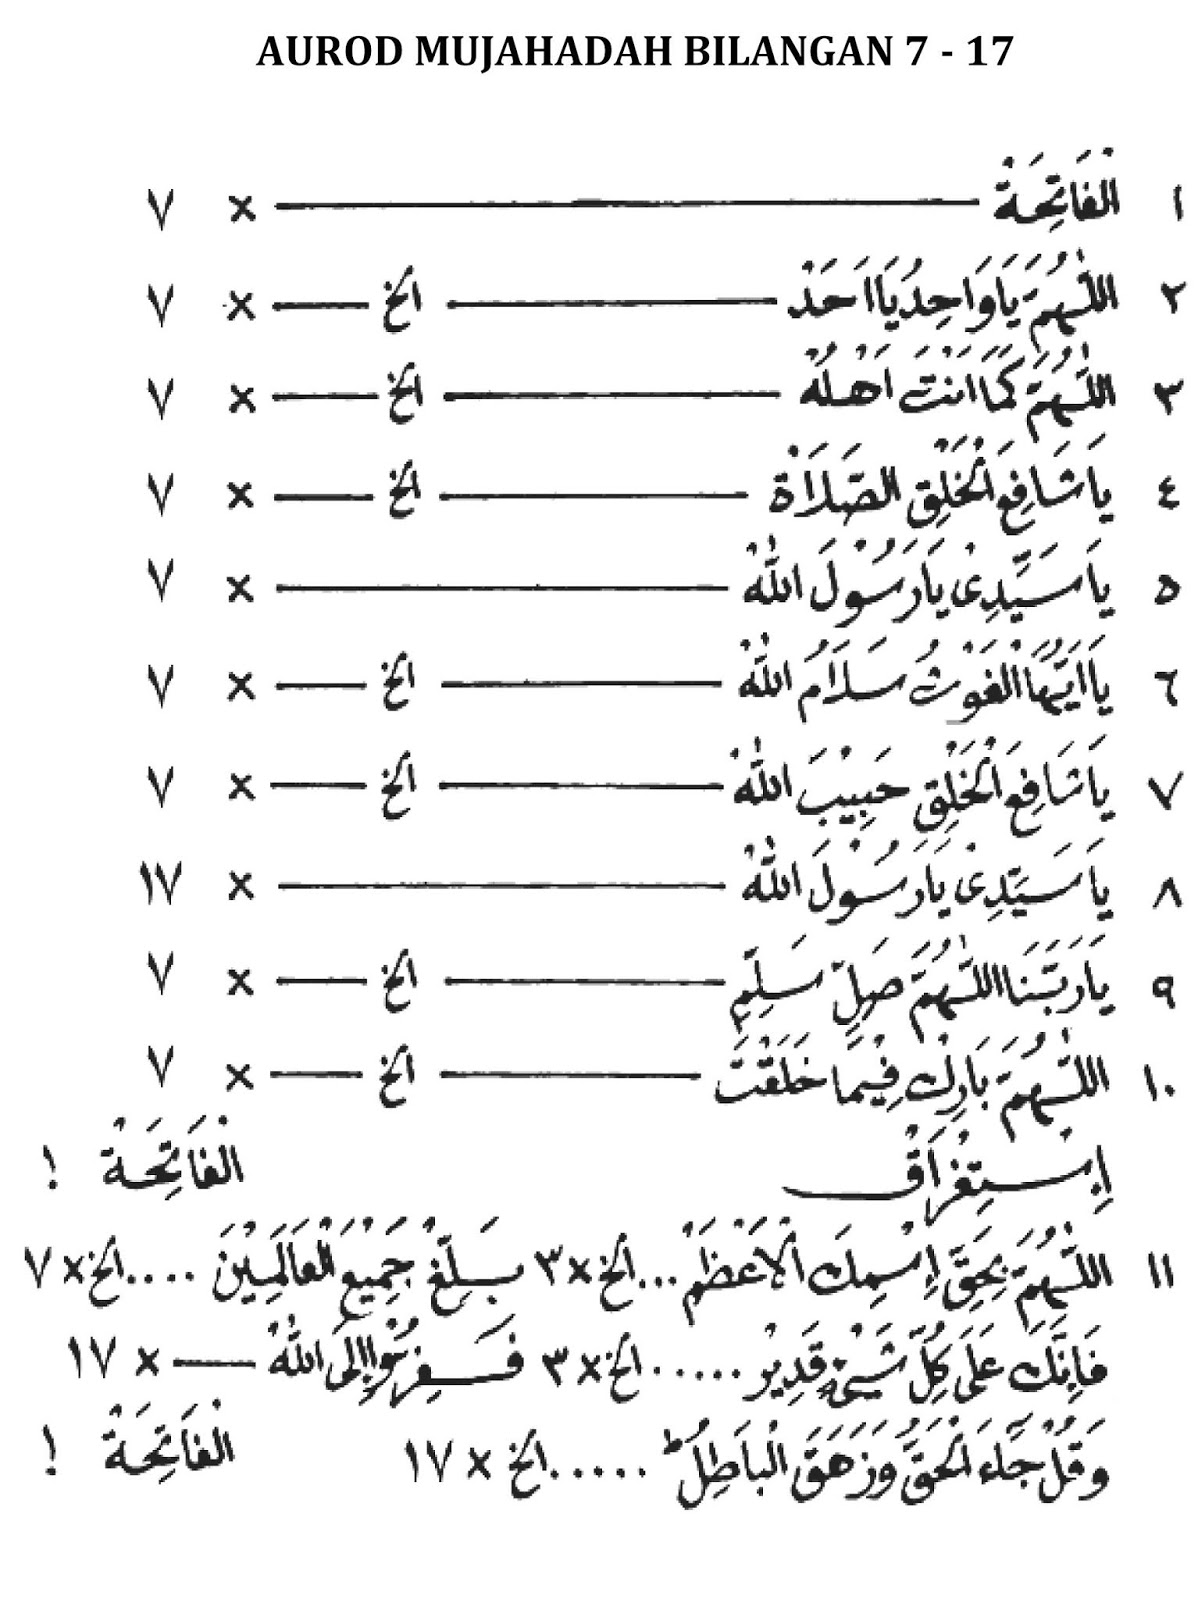 AUROD MUJAHADAH BILANGAN 7 - 17
١ الْفَاتِحَةْ × ٧
٢ اللّٰهُمَّ يَا وَاحِدُ يَا اَحَدْ الخ × ٧
٣ اللّٰهُمَّ كَمَا اَنْتَ اَهْلُهْ الخ × ٧
٤ يَا شَافِعَ الْخَلْقِ الصَّلَاةْ الخ × ٧
٥ يَا سَيِّدِىْ يَا رَسُوْلَ اللّٰهْ × ٧
٦ يَا اَيُّهَا الْغَوْثُ سَلَامُ اللّٰهْ الخ × ٧
٧ يَا شَافِعَ الْخَلْقِ حَبِيْبَ اللّٰهْ الخ × ٧
٨ يَا سَيِّدِىْ يَا رَسُوْلَ اللّٰهْ × ١٧
٩ يَا رَبَّنَا اللّٰهُمَّ صَلِّ سَلِّمِ الخ × ٧
١٠ اللّٰهُمَّ بَارِكْ فِيْمَا خَلَقْتَ الخ × ٧
اِسْتِغْرَاقْ الْفَاتِحَةْ !
١١ اللّٰهُمَّ بِحَقِّ اِسْمِكَ الْاَعْظَمْ ...الخ × ٣ بَلِّغْ جَمِيْعَ الْعَالَمِيْنَ ....الخ × ٧
فَاِنَّكَ عَلَى كُلِّ شَيْءٍ قَدِيْر .....الخ × ٣ فَفِرُّوْا اِلَى اللّٰهْ × ١٧
وَقُلْ جَاءَ الْحَقُّ وَزَهَقَ الْبَاطِلُ ط .....الخ × ١٧ الْفَاتِحَةْ !